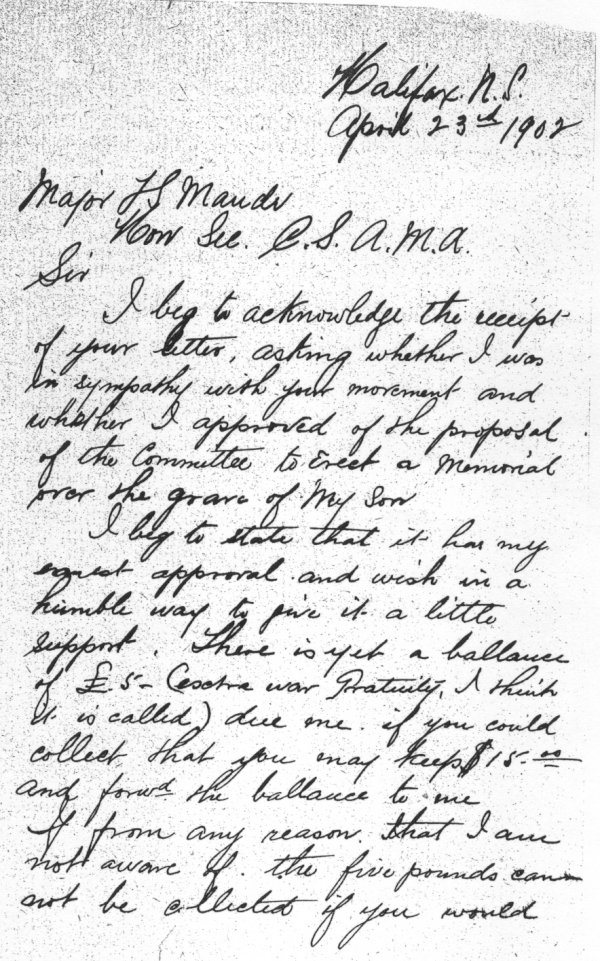 Halifax. N.S.
April 23rd 1902
Major F S Maude
Hon Sec. C. S. A. M. A.
Sir
I beg to acknowledge the receipt
of your letter, asking whether I was
in sympathy with your movement and
whether I approved of the proposal
of the Committee to Erect a Memorial
over the grave of My Son
I beg to state that it has my
approval and wish in a
humble way to give it a little
support. There is yet a ballance
of £5- (esctra war Gratuity, I think
it is called) due me. if you could
collect that you may keep $15.00
and forwd the ballance to me
If from any reason. that I am
not aware of. the five pounds can
not be collected if you would